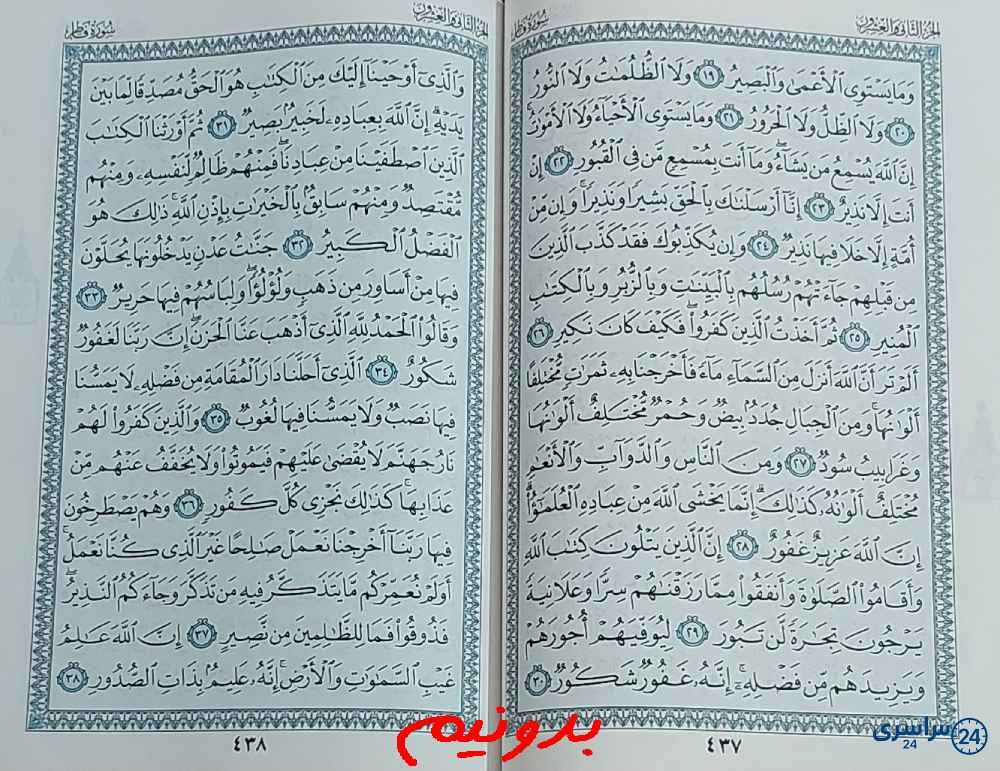 الجزء الثاني والعشرون
سورة فاطر
وَمَا يَسْتَوِي الْأَعْمَىٰ وَالْبَصِيرُ ١٩ وَلَا الظُّلُمَاتُ وَلَا النُّورُ
٢٠ وَلَا الظِّلُّ وَلَا الْحَرُورُ ٢١ وَمَا يَسْتَوِي الْأَحْيَاءُ وَلَا الْأَمْوَاتُ ۚ
إِنَّ اللَّهَ يُسْمِعُ مَن يَشَاءُ ۖ وَمَا أَنتَ بِمُسْمِعٍ مَّن فِي الْقُبُورِ ٢٢ إِنْ
أَنتَ إِلَّا نَذِيرٌ ٢٣ إِنَّا أَرْسَلْنَاكَ بِالْحَقِّ بَشِيرًا وَنَذِيرًا ۚ وَإِن مِّنْ
أُمَّةٍ إِلَّا خَلَا فِيهَا نَذِيرٌ ٢٤ وَإِن يُكَذِّبُوكَ فَقَدْ كَذَّبَ الَّذِينَ
مِن قَبْلِهِمْ جَاءَتْهُمْ رُسُلُهُم بِالْبَيِّنَاتِ وَبِالزُّبُرِ وَبِالْكِتَابِ
الْمُنِيرِ ٢٥ ثُمَّ أَخَذْتُ الَّذِينَ كَفَرُوا ۖ فَكَيْفَ كَانَ نَكِيرِ ٢٦
أَلَمْ تَرَ أَنَّ اللَّهَ أَنزَلَ مِنَ السَّمَاءِ مَاءً فَأَخْرَجْنَا بِهِ ثَمَرَاتٍ مُّخْتَلِفًا
أَلْوَانُهَا ۚ وَمِنَ الْجِبَالِ جُدَدٌ بِيضٌ وَحُمْرٌ مُّخْتَلِفٌ أَلْوَانُهَا
وَغَرَابِيبُ سُودٌ ٢٧ وَمِنَ النَّاسِ وَالدَّوَابِّ وَالْأَنْعَامِ
مُخْتَلِفٌ أَلْوَانُهُ كَذَٰلِكَ ۗ إِنَّمَا يَخْشَى اللَّهَ مِنْ عِبَادِهِ الْعُلَمَاءُ ۗ
إِنَّ اللَّهَ عَزِيزٌ غَفُورٌ ٢٨ إِنَّ الَّذِينَ يَتْلُونَ كِتَابَ اللَّهِ
وَأَقَامُوا الصَّلَاةَ وَأَنفَقُوا مِمَّا رَزَقْنَاهُمْ سِرًّا وَعَلَانِيَةً
يَرْجُونَ تِجَارَةً لَّن تَبُورَ ٢٩ لِيُوَفِّيَهُمْ أُجُورَهُمْ
وَيَزِيدَهُم مِّن فَضْلِهِ ۚ إِنَّهُ غَفُورٌ شَكُورٌ ٣٠
٤٣٧
الجزء الثاني والعشرون
سورة فاطر
وَالَّذِي أَوْحَيْنَا إِلَيْكَ مِنَ الْكِتَابِ هُوَ الْحَقُّ مُصَدِّقًا لِّمَا بَيْنَ
يَدَيْهِ ۗ إِنَّ اللَّهَ بِعِبَادِهِ لَخَبِيرٌ بَصِيرٌ ٣١ ثُمَّ أَوْرَثْنَا الْكِتَابَ
الَّذِينَ اصْطَفَيْنَا مِنْ عِبَادِنَا ۖ فَمِنْهُمْ ظَالِمٌ لِّنَفْسِهِ وَمِنْهُم
مُّقْتَصِدٌ وَمِنْهُمْ سَابِقٌ بِالْخَيْرَاتِ بِإِذْنِ اللَّهِ ۚ ذَٰلِكَ هُوَ
الْفَضْلُ الْكَبِيرُ ٣٢ جَنَّاتُ عَدْنٍ يَدْخُلُونَهَا يُحَلَّوْنَ
فِيهَا مِنْ أَسَاوِرَ مِن ذَهَبٍ وَلُؤْلُؤًا ۖ وَلِبَاسُهُمْ فِيهَا حَرِيرٌ ٣٣
وَقَالُوا الْحَمْدُ لِلَّهِ الَّذِي أَذْهَبَ عَنَّا الْحَزَنَ ۖ إِنَّ رَبَّنَا لَغَفُورٌ
شَكُورٌ ٣٤ الَّذِي أَحَلَّنَا دَارَ الْمُقَامَةِ مِن فَضْلِهِ لَا يَمَسُّنَا
فِيهَا نَصَبٌ وَلَا يَمَسُّنَا فِيهَا لُغُوبٌ ٣٥ وَالَّذِينَ كَفَرُوا لَهُمْ
نَارُ جَهَنَّمَ لَا يُقْضَىٰ عَلَيْهِمْ فَيَمُوتُوا وَلَا يُخَفَّفُ عَنْهُم مِّنْ
عَذَابِهَا ۚ كَذَٰلِكَ نَجْزِي كُلَّ كَفُورٍ ٣٦ وَهُمْ يَصْطَرِخُونَ
فِيهَا رَبَّنَا أَخْرِجْنَا نَعْمَلْ صَالِحًا غَيْرَ الَّذِي كُنَّا نَعْمَلُ ۚ
أَوَلَمْ نُعَمِّرْكُم مَّا يَتَذَكَّرُ فِيهِ مَن تَذَكَّرَ وَجَاءَكُمُ النَّذِيرُ ۖ
فَذُوقُوا فَمَا لِلظَّالِمِينَ مِن نَّصِيرٍ ٣٧ إِنَّ اللَّهَ عَالِمُ
غَيْبِ السَّمَاوَاتِ وَالْأَرْضِ ۚ إِنَّهُ عَلِيمٌ بِذَاتِ الصُّدُورِ ٣٨
٤٣٨
بدونیم
سراسری 24
24